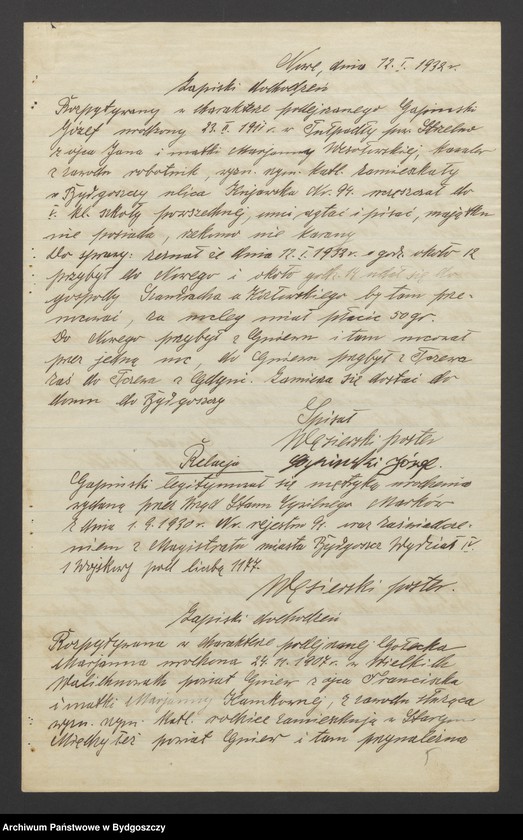 Nowe, dnia 12. I. 1932 r.
Zapiski dochodzeń
Rozpytywany w charakterze podejrzanego Gapiński
Józef urodzony 23. II. 1911 r. w pow. Strzelno
z ojca Jana i matki Marjanny Wesołowskiej, kawaler
z zawodu robotnik, wyzn. rzym. katl. zamieszkały
w Bydgoszczy ulica Kujawska Nr. 94. uczęszczał do
kl. szkoły powszechnej, umi czytać i pisać, majątku
nie posiada, rzekomo nie karany
Do sprawy: zeznał że dnia 11. I. 1932 r. o godz. około 12
przybył do Nowego i około godz. udał się do
gospody a Kozłowskiego by tam prze-
nocować, za nocleg miał płacić 50 gr.
Do Nowego przybył z Gniewu i tam nocował
przez jedną noc, do Gniewu przybył z Tczewa
zaś do Tczewa z Gdyni. Zamierza się dostać do
domu do Bydgoszczy
Spisał
Węsierski poster
Gapiński Józef.
Relacja
Gapiński legitymował się metryką urodzenia
wydaną przez Urząd Stanu Cywilnego Marków
z dnia 1. 9. 1930 r. Nr. rejestru 91. oraz zaświadcze-
niem z Magistratu miasta Bydgoszcz Wydział IV.
Wojskowy pod liczbą 1177.
Węsierski poster.
Zapiski dochodzeń
Rozpytywana w charakterze podejrzanej Gołecka
Marjanna urodzona 24. 11. 1907 r. w Wielkile
Walichnowach powiat Gniew z ojca Franciszka
i matki Marjanny z zawodu służąca
wyzn. rzym. katl. rodzice zamieszkują w Starym
Międzyłęż powiat Gniew i tam przynależna
Archiwum Państwowe w Bydgoszczy